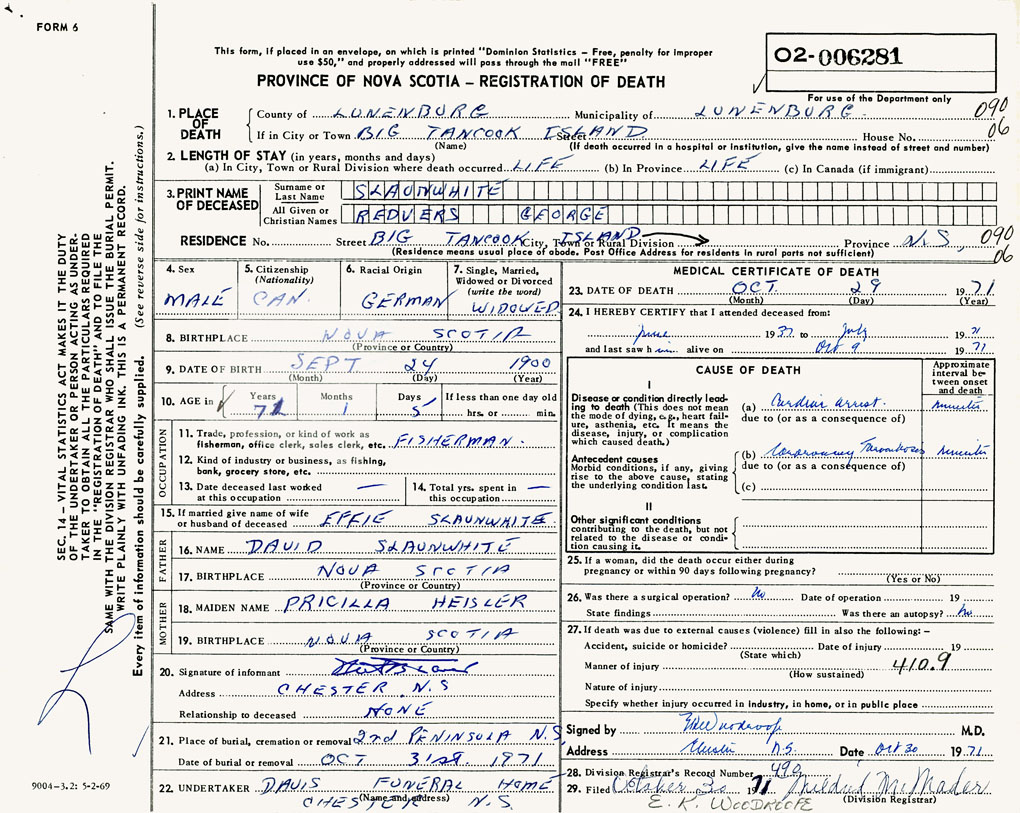 FORM 6
This form, if placed in an envelope, on which is printed "Dominion Statistics – Free, penalty for improper
use $50," and properly addressed will pass through the mail "FREE"
PROVINCE OF NOVA SCOTIA – REGISTRATION OF DEATH
02-006281
For use of the Department only
1. PLACE OF DEATH
County of LUNENBURG Municipality of LUNENBURG. 090
If in City or Town BIG TANCOOK Street ISLAND House No. 06
(Name) (If death occurred in a hospital or institution, give the name instead of street and number)
2. LENGTH OF STAY (in years, months and days)
(a) In City, Town or Rural Division where death occurred LIFE (b) In Province LIFE (c) In Canada (if immigrant)
3. PRINT NAME OF DECEASED
Surname or Last Name SLAUNWHITE
All Given or Christian Names REDVERS GEORGE
RESIDENCE No. Street BIG TANCOOK ISLAND City, Town or Rural Division Province N.S, 090
(Residence means usual place of abode. Post Office Address for residents in rural parts not sufficient) 06
4. Sex MALE
5. Citizenship (Nationality) CAN.
6. Racial Origin GERMAN
7. Single, Married, Widowed or Divorced (write the word) WIDOWED
8. BIRTHPLACE NOVA SCOTIA
(Province or Country)
9. DATE OF BIRTH SEPT 24 1900
(Month) (Day) (Year)
10. AGE in Years 71 Months 1 Days 5 If less than one day old
hrs. or min.
OCCUPATION
11. Trade, profession, or kind of work as
fisherman, office clerk, sales clerk, etc. FISHERMAN.
12. Kind of industry or business, as fishing,
bank, grocery store, etc.
13. Date deceased last worked at this occupation —
14. Total yrs. spent in this occupation —
15. If married give name of wife
or husband of deceased EFFIE SLAUNWHITE
FATHER
16. NAME DAVID SLAUNWHITE
17. BIRTHPLACE NOVA SCOTIA
(Province or Country)
MOTHER
18. MAIDEN NAME PRICILLA HEISLER
19. BIRTHPLACE NOVIA SCOTIA
(Province or Country)
20. Signature of informant
Address CHESTER N.S
Relationship to deceased NONE
21. Place of burial, cremation or removal 2nd PENINSULA N.S.
Date of burial or removal OCT 31st. 1971
22. UNDERTAKER DAVIS FUNERAL HOME
(Name and address) CHESTER N.S.
MEDICAL CERTIFICATE OF DEATH
23. DATE OF DEATH OCT. 29 1971
(Month) (Day) (Year)
24. I HEREBY CERTIFY that I attended deceased from:
June 1937 to July 1971
and last saw him alive on Oct 9 1971
CAUSE OF DEATH
Approximate interval between onset and death
I
Disease or condition directly leading to death (This does not mean the mode of dying, e.g., heart failure, asthenia, etc. It means the disease, injury, or complication which caused death.)
(a) Cardiac arrest. minutes
due to (or as a consequence of)
Antecedent causes
Morbid conditions, if any, giving rise to the above cause, stating the underlying condition last.
(b) Coronary Thrombosis minutes
due to (or as a consequence of)
(c)
II
Other significant conditions contributing to the death, but not related to the disease or condition causing it.
25. If a woman, did the death occur either during
pregnancy or within 90 days following pregnancy?
(Yes or No)
26. Was there a surgical operation? No Date of operation 19
State findings Was there an autopsy? No
27. If death was due to external causes (violence) fill in also the following: –
Accident, suicide or homicide? Date of injury 19
(State which)
Manner of injury 410.9
(How sustained)
Nature of injury
Specify whether injury occurred in industry, in home, or in public place
Signed by Woodroofe M.D.
Address Chester N.S. Date Oct 30 1971
28. Division Registrar's Record Number 499
29. Filed October 30 1971 Mildred McMader
E. K. WOODROOFE (Division Registrar)
SEC. 14 – VITAL STATISTICS ACT MAKES IT THE DUTY
OF THE UNDERTAKER OR PERSON ACTING AS UNDER-
TAKER TO OBTAIN ALL THE PARTICULARS REQUIRED
IN THE "REGISTRATION OF DEATH" AND TO FILE THE
SAME WITH THE DIVISION REGISTRAR WHO SHALL ISSUE THE BURIAL PERMIT.
WRITE PLAINLY WITH UNFADING INK. THIS IS A PERMANENT RECORD.
Every item of information should be carefully supplied. (See reverse side for instructions.)
9004-3.2: 5-2-69